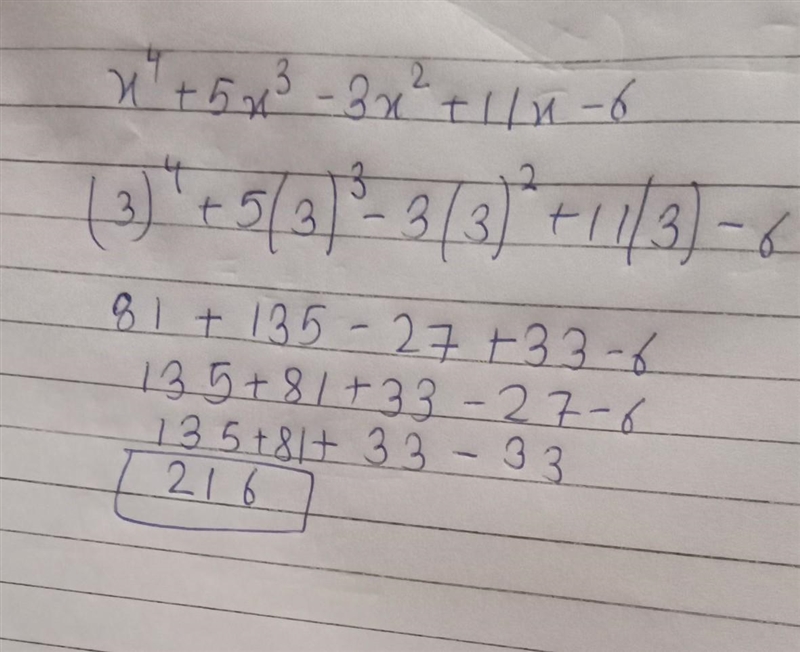 x⁴ + 5x³ - 3x² + 11x - 6
(3)⁴ + 5(3)³ - 3(3)² + 11(3) - 6
81 + 135 - 27 + 33 - 6
135 + 81 + 33 - 27 - 6
135 + 81 + 33 - 33
216